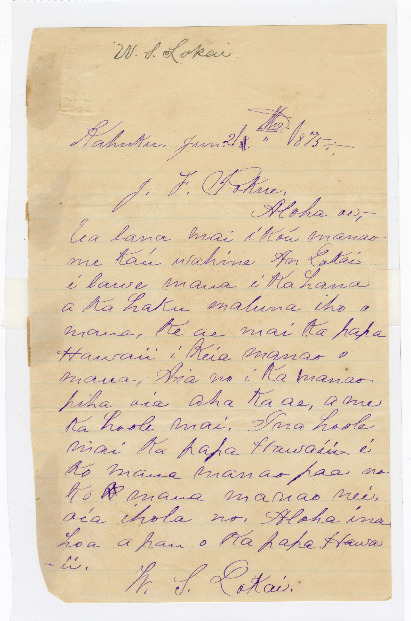 W. S. Lokai
Kahuku. June 21 " 1875
J. F. Pokue.
Aloha oe,
Ua lana mai i kou manao
me kau wahine Am Lokai
i lawe maua i ka hana
a ka haku maluna iho o
maua, ke ae mai ka papa
Hawaii i keia manao o
maua, Aia no i ka manao
piha oia aha ka ae, a me
ka hoole mai. Ina hoole
mai ka papa Hawaii i
ko maua manao paa no
ko maua manao nei.
oia ihola no. Aloha ina
hoa a pau o ka papa Hawa
ii.
W. S. Lokai.